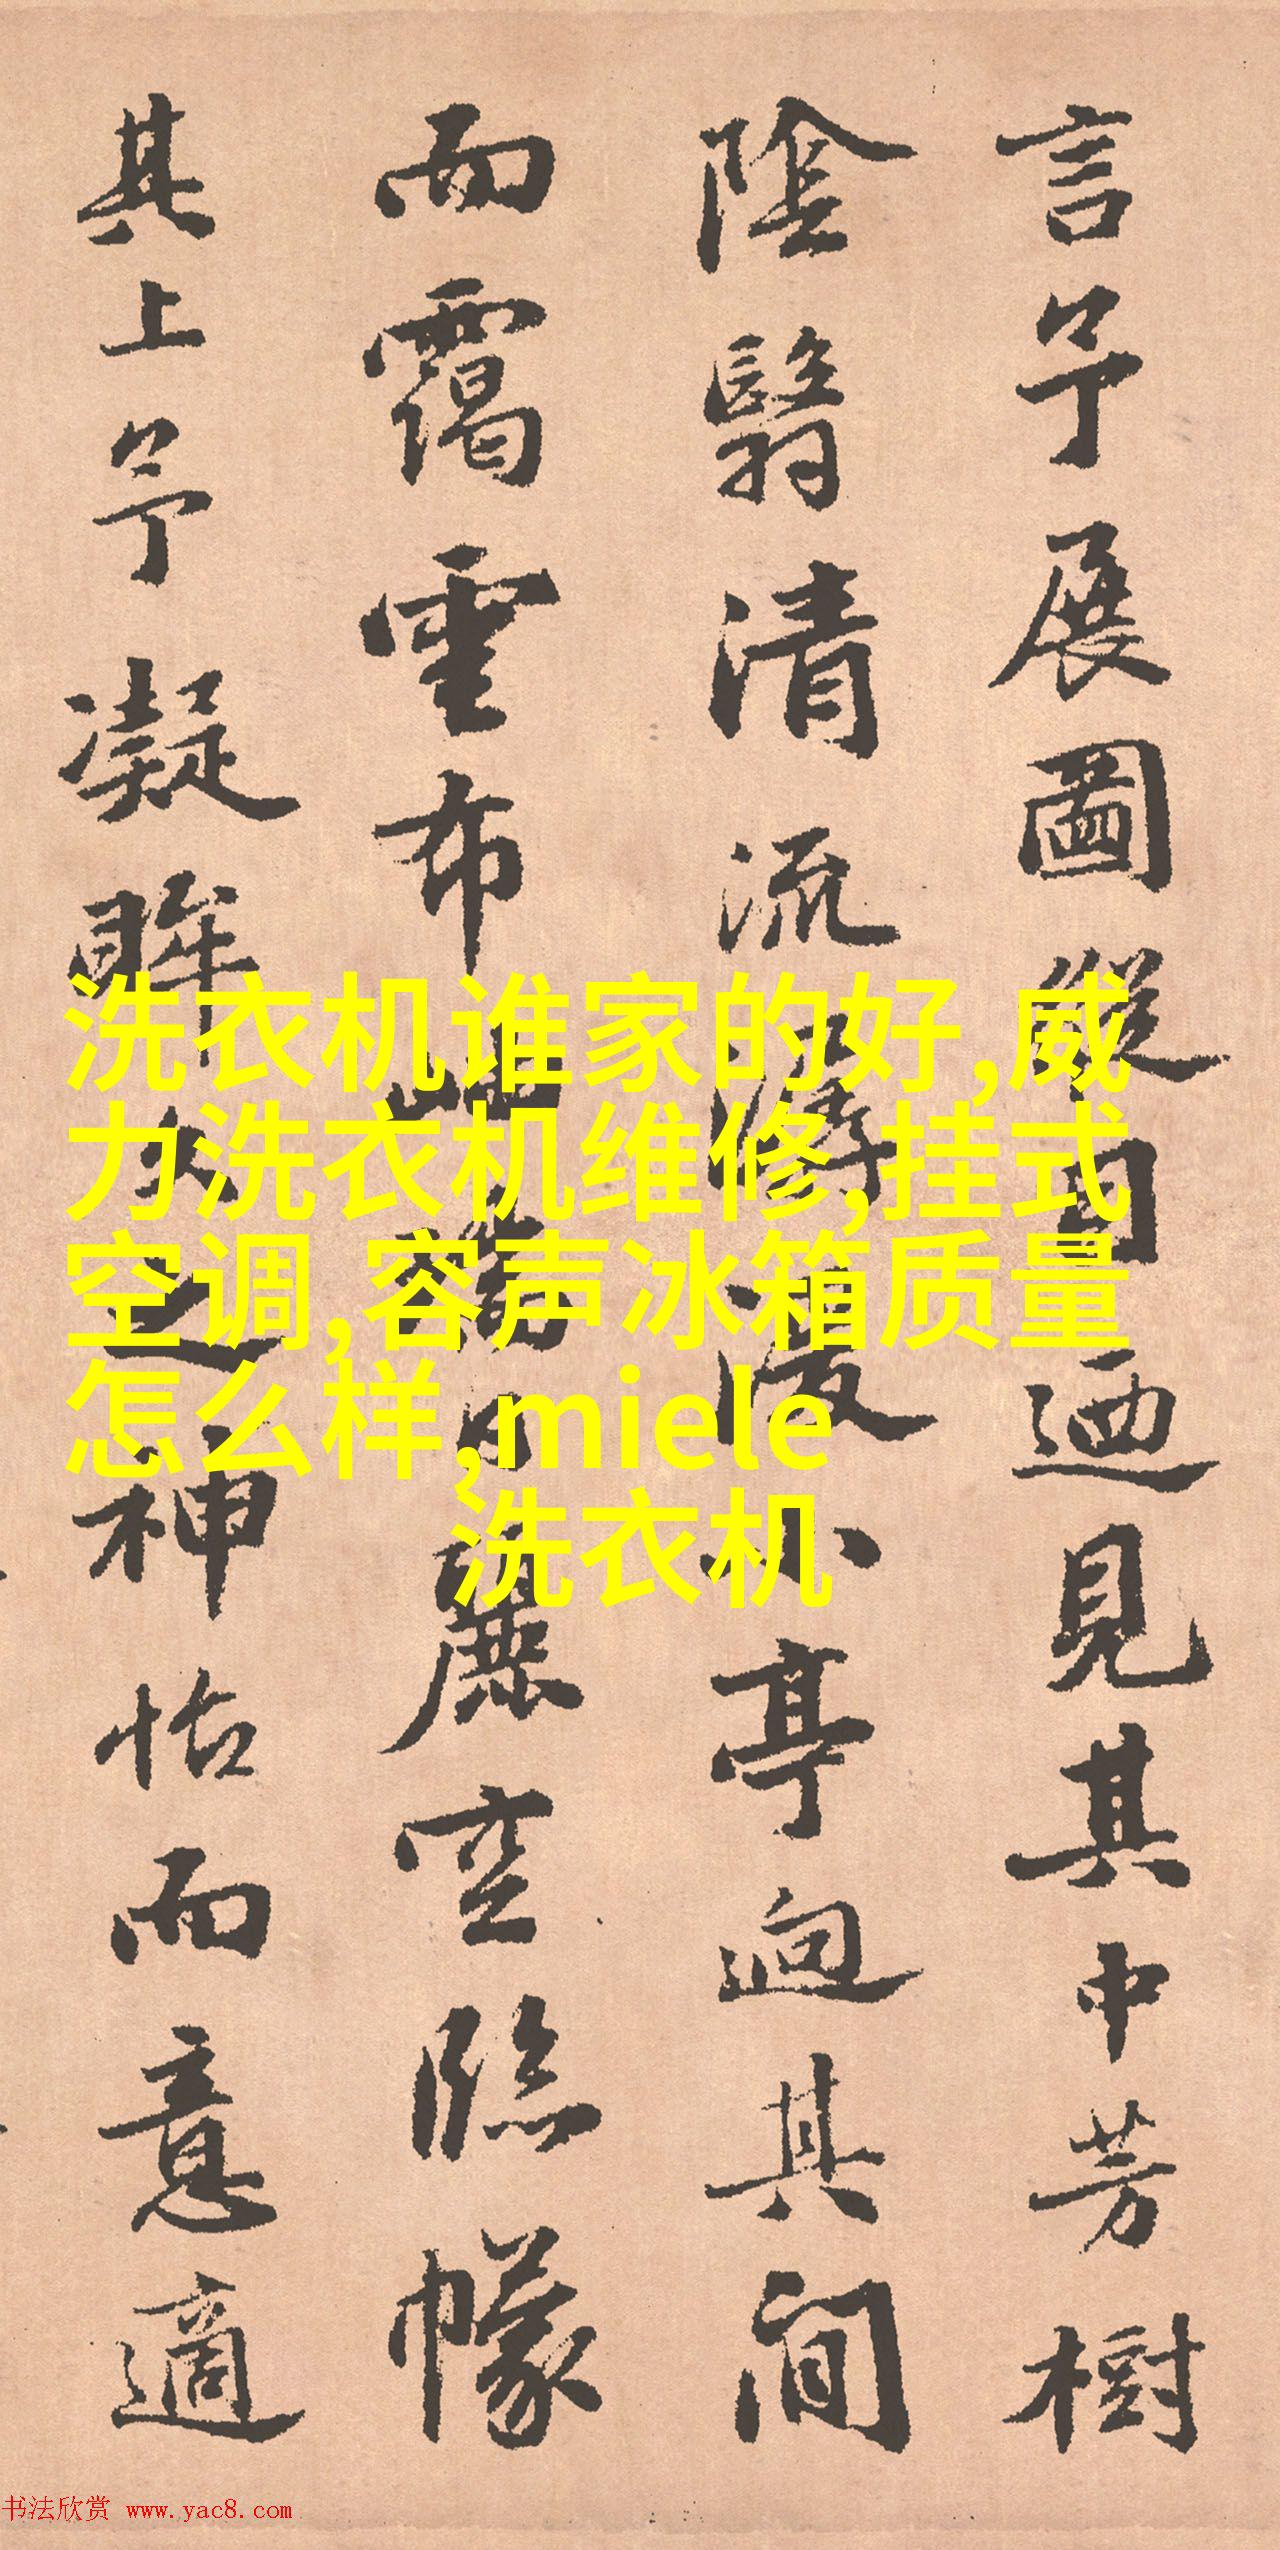 言予展圖縱目迺見其中芳樹
陰翳清流潺湲小亭逈其間
而靄雲布岫日麗空臨幪
其上予凝眸久之神怡而意適
洗衣机谁家的好,威
力洗衣机维修,挂式
空调,容声冰箱质量
怎么样,miele
洗衣机
书法欣赏 www.yac8.com